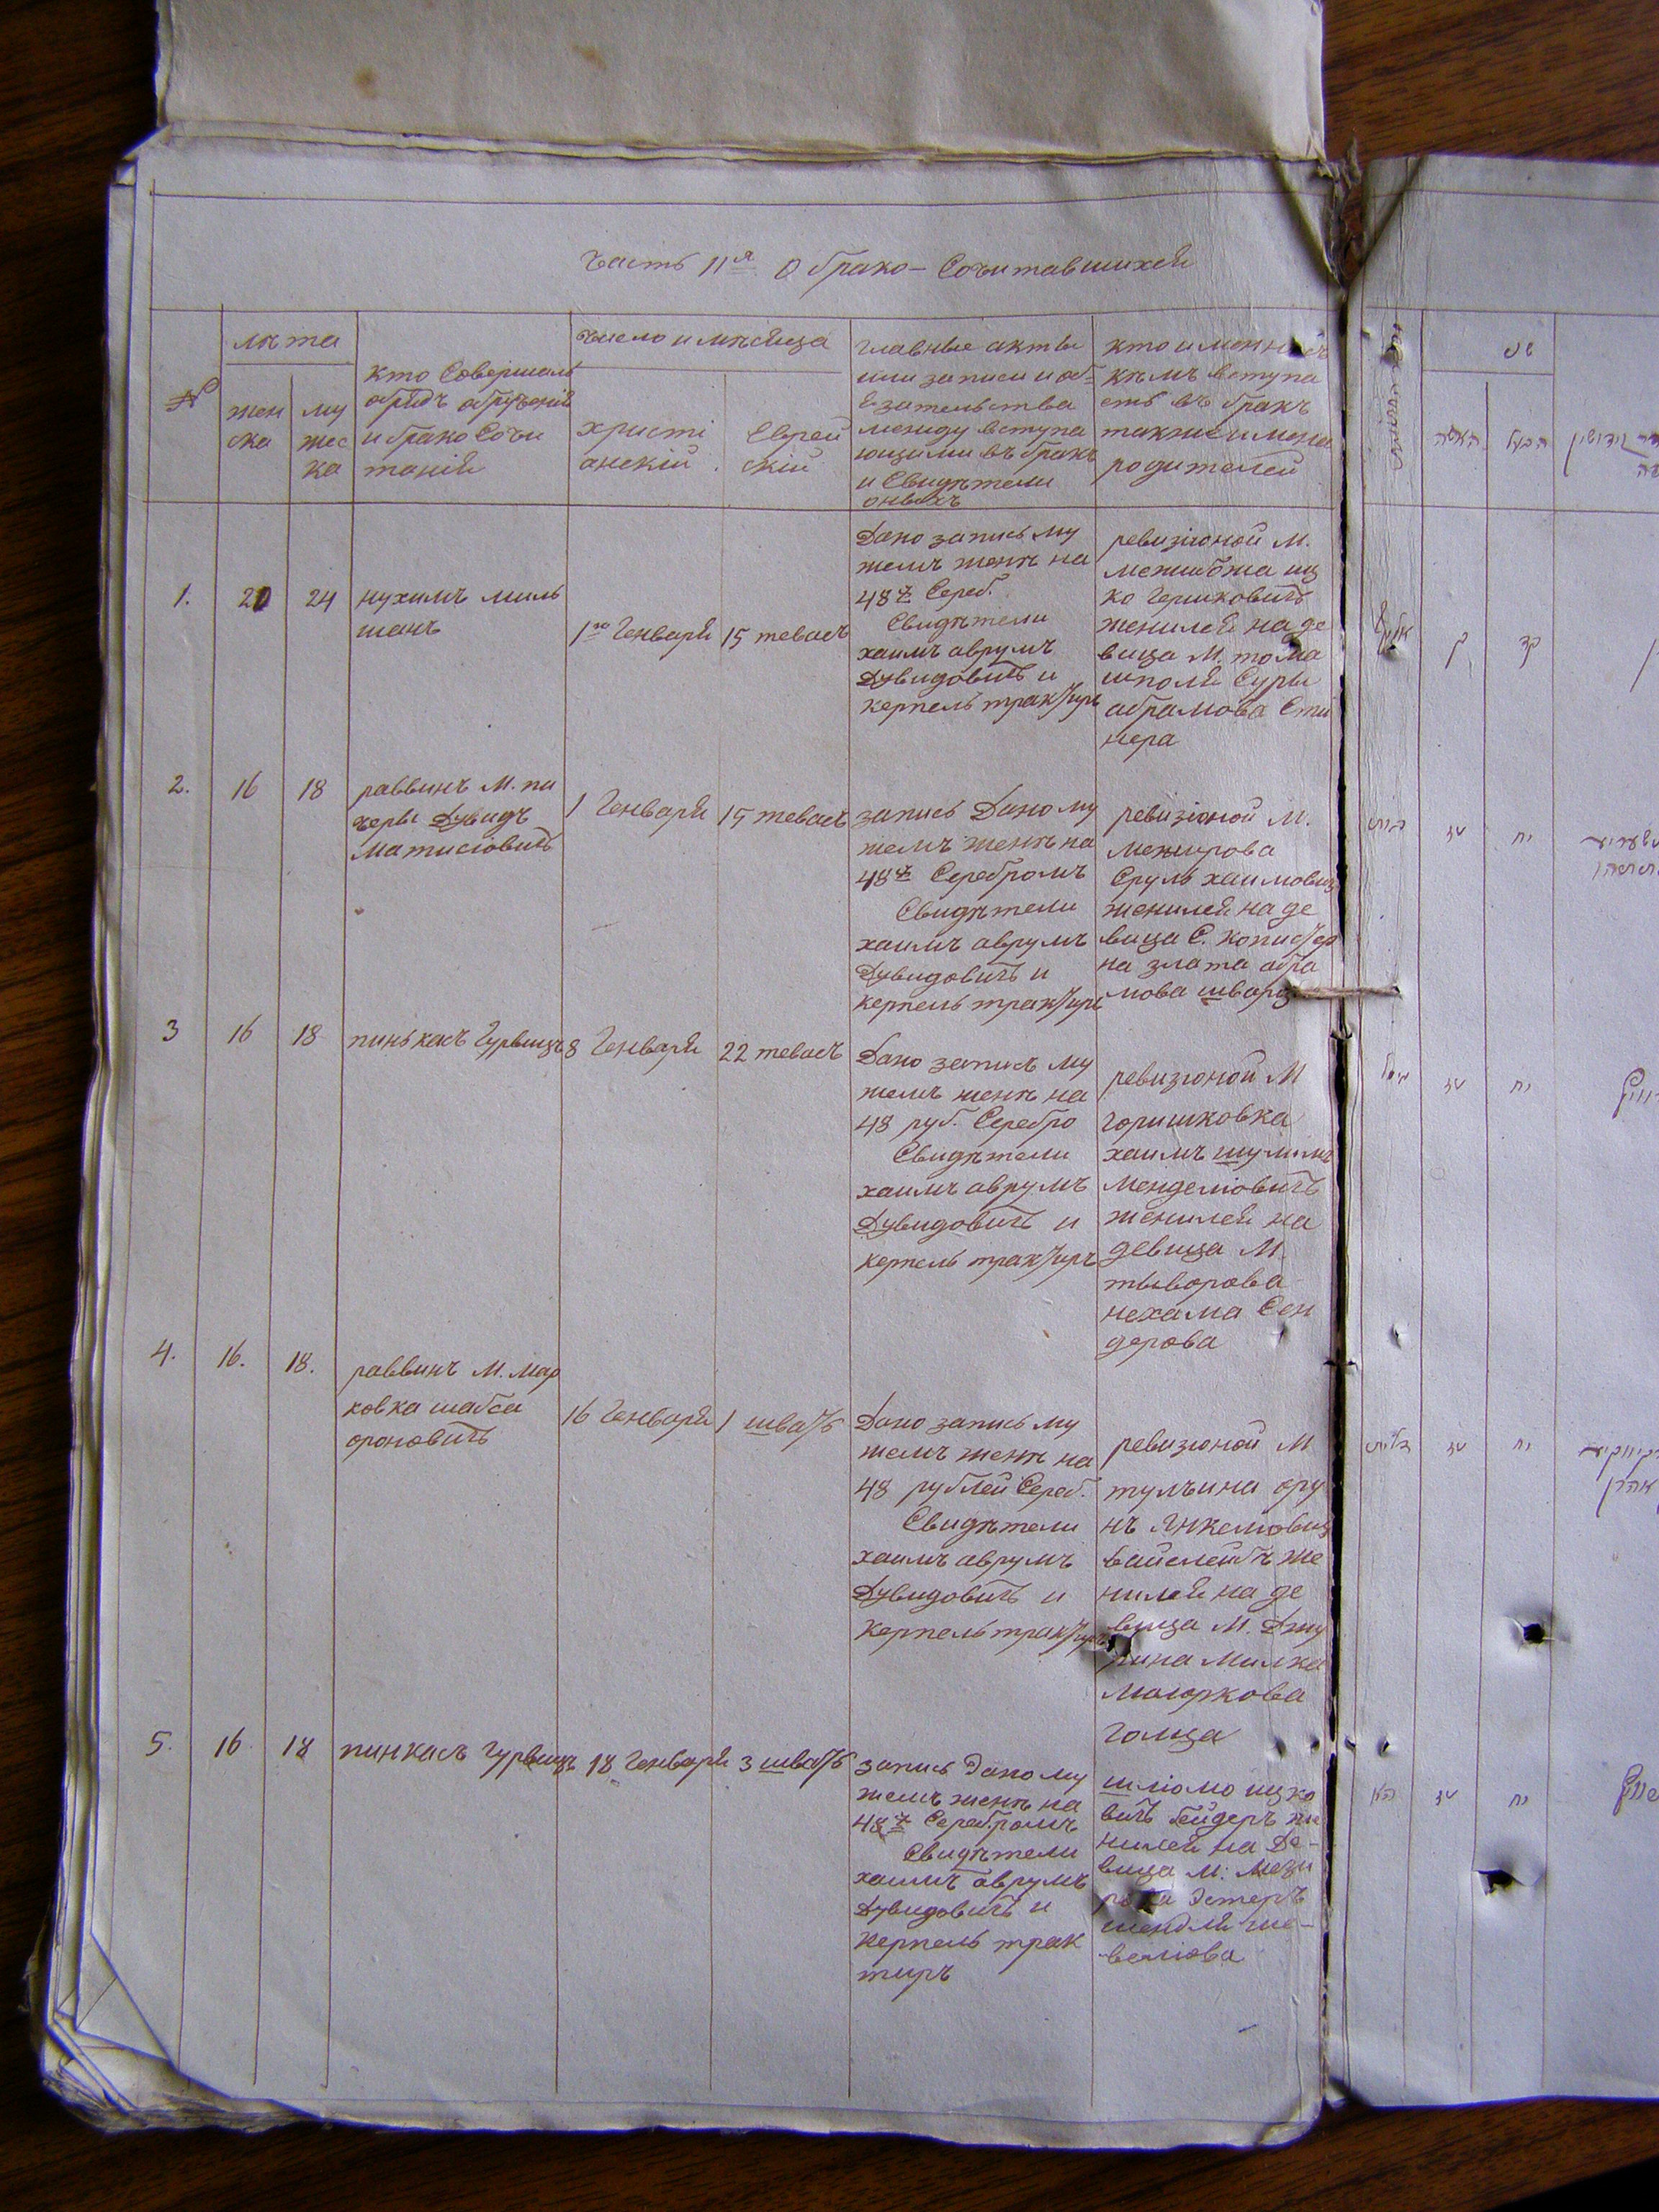 Часть IIя О брако-Сочитавшихся
№
лѣта
жен
ска
му
жес
ка
кто Совершалъ
обрядъ обрученія
и брако Сочи
танія
число и мѣсяца
христі
анскій
Еврей
скій
главные акты
или записи и об-
езательства
между вступа
ющими въ бракъ
и Свидѣтели
оныхъ
кто именно съ
кѣмъ вступа
етъ въ бракъ
также имена
родителей
1.
20
24
нухимъ миль
манъ
1го Генваря
15 тевасъ
Дано запись му
жемъ женѣ на
48 Сереб.
Свидѣтели
хаимъ аврумъ
Дувидовичъ и
керпель трактиръ
ревизіоной М.
межибожа иц
ко Гершковичъ
женился на де
вица М. тома
шполя Суры
абрамова Сти
нера
2.
16
18
раввинъ М. пи
черы Дувидъ
Матисіовичъ
1 Генваря
15 тевасъ
запись Дано му
жемъ женѣ на
48 Серебромъ
Свидѣтели
хаимъ аврумъ
Дувидовичъ и
керпель трактиръ
ревизіоной М.
межирова
Сруль хаимович
женился на де
вица С. копистер
на злата абра
мова шварц
3
16
18
пинькасъ Гурвицъ
8 Генваря
22 тевасъ
Дано запись му
жемъ женѣ на
48 руб. Серебро
Свидѣтели
хаимъ аврумъ
Дувидовичъ и
керпель трактиръ
ревизіоной М
горишковка
хаимъ шулимъ
Менделіовичъ
женился на
девица М.
тыврова
нехама Сен
дерова
4.
16.
18.
раввинъ М. Мар
ковка шабса
ароновичъ
16 Генваря
1 шватъ
Дано запись му
жемъ женѣ на
48 рублей Сереб.
Свидѣтели
хаимъ аврумъ
Дувидовичъ и
керпель трактиръ
ревизіоной М
тульчина ару
нъ Янкеліович
вайслейбъ же
нился на де
вица М. Джу
рина Милка
Маіоркова
голца
5.
16
18
пинкасъ Гурвицъ
18 Генваря
3 шватъ
запись Дано му
жемъ женѣ на
48 Серебромъ
Свидѣтели
хаимъ аврумъ
Дувидовичъ и
керпель трак
тиръ
шліомо ицко
вичъ бейдеръ же
нился на Де-
вица М: межи
рова Эстеръ
шендля ше-
веліова
שנ
האשה
הבעל
ק
קד
טז
יח
טז
יח
טז
יח
אהרן
טז
יח